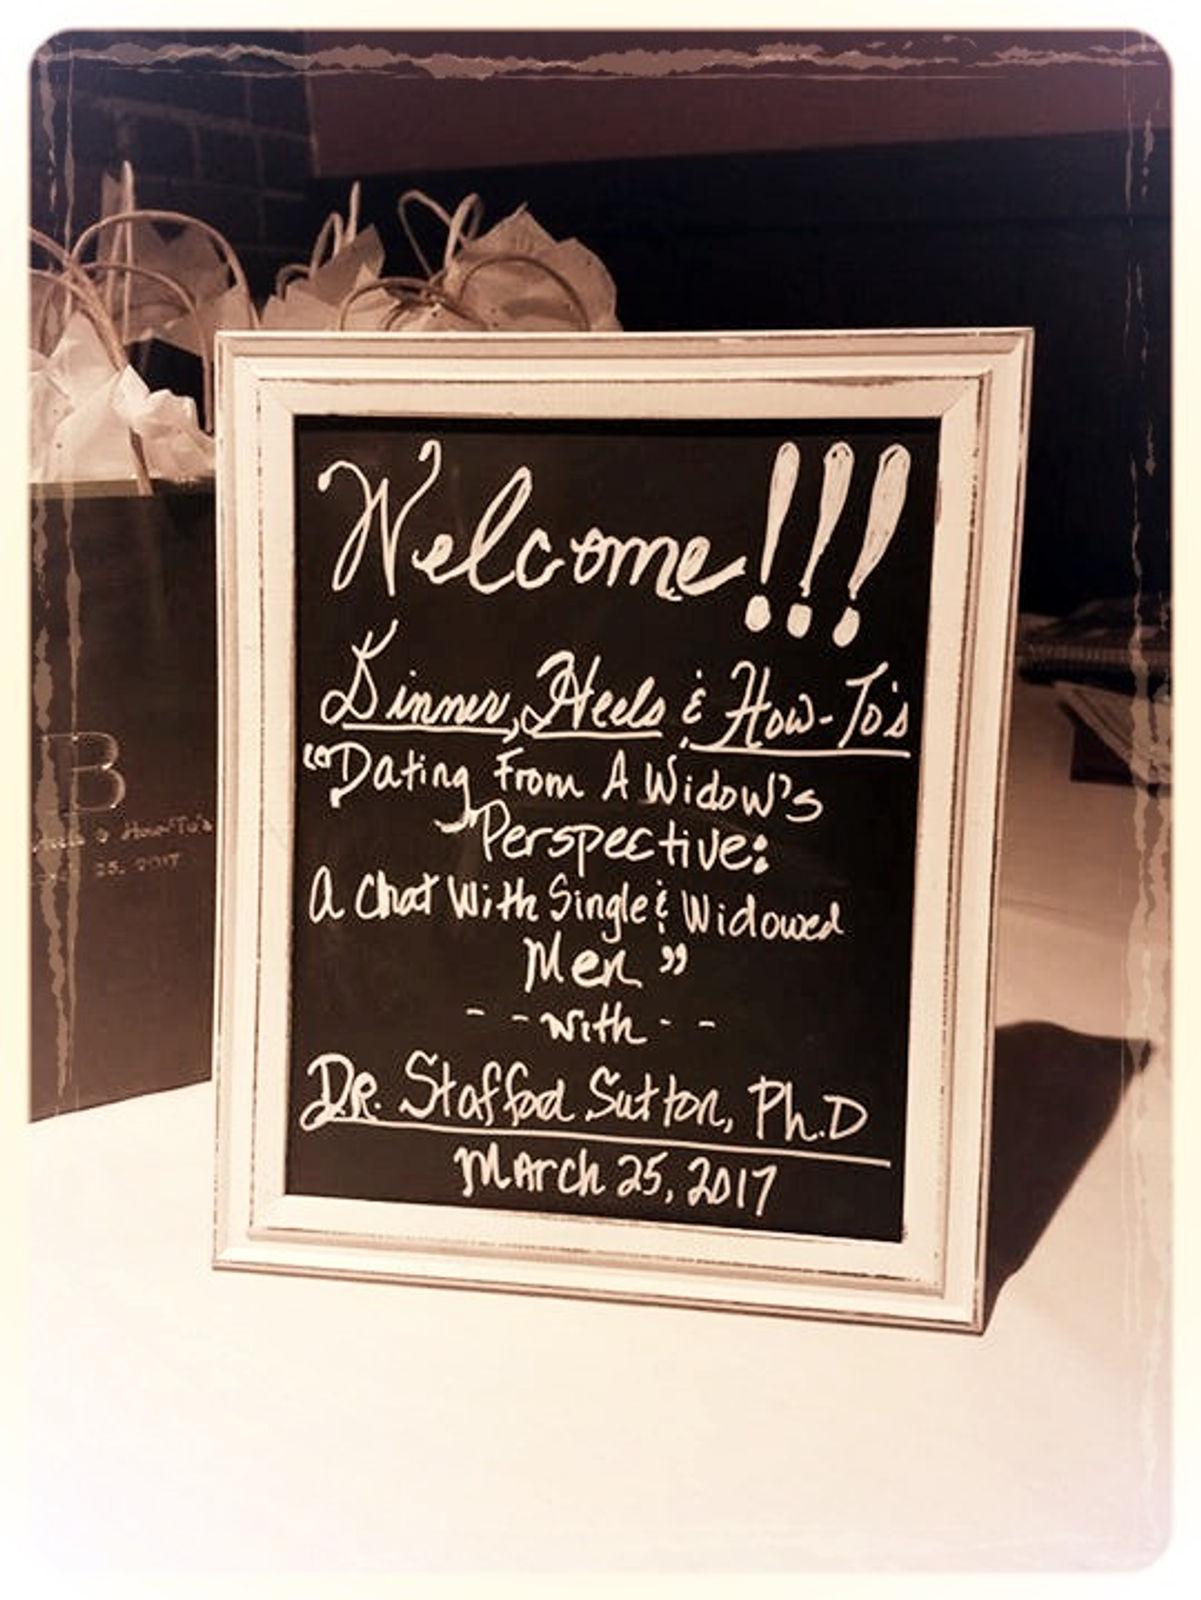 Welcome!!!
Dinner, Heels & How-To's
"Dating From A Widow's
Perspective:
A Chat With Single & Widowed
Men"
--with--
DR. Stafford Sutton, Ph.D
March 25, 2017
B
& How-To's
25, 2017